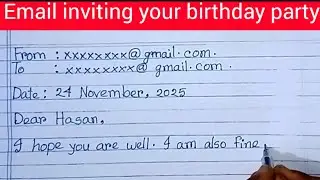 Email inviting your birthday party
From : xxxxxxxx@gmail.com.
To : xxxxxxxx@gmail.com.
Date : 24 November, 2025
Dear Hasan,
I hope you are well. I am also fine